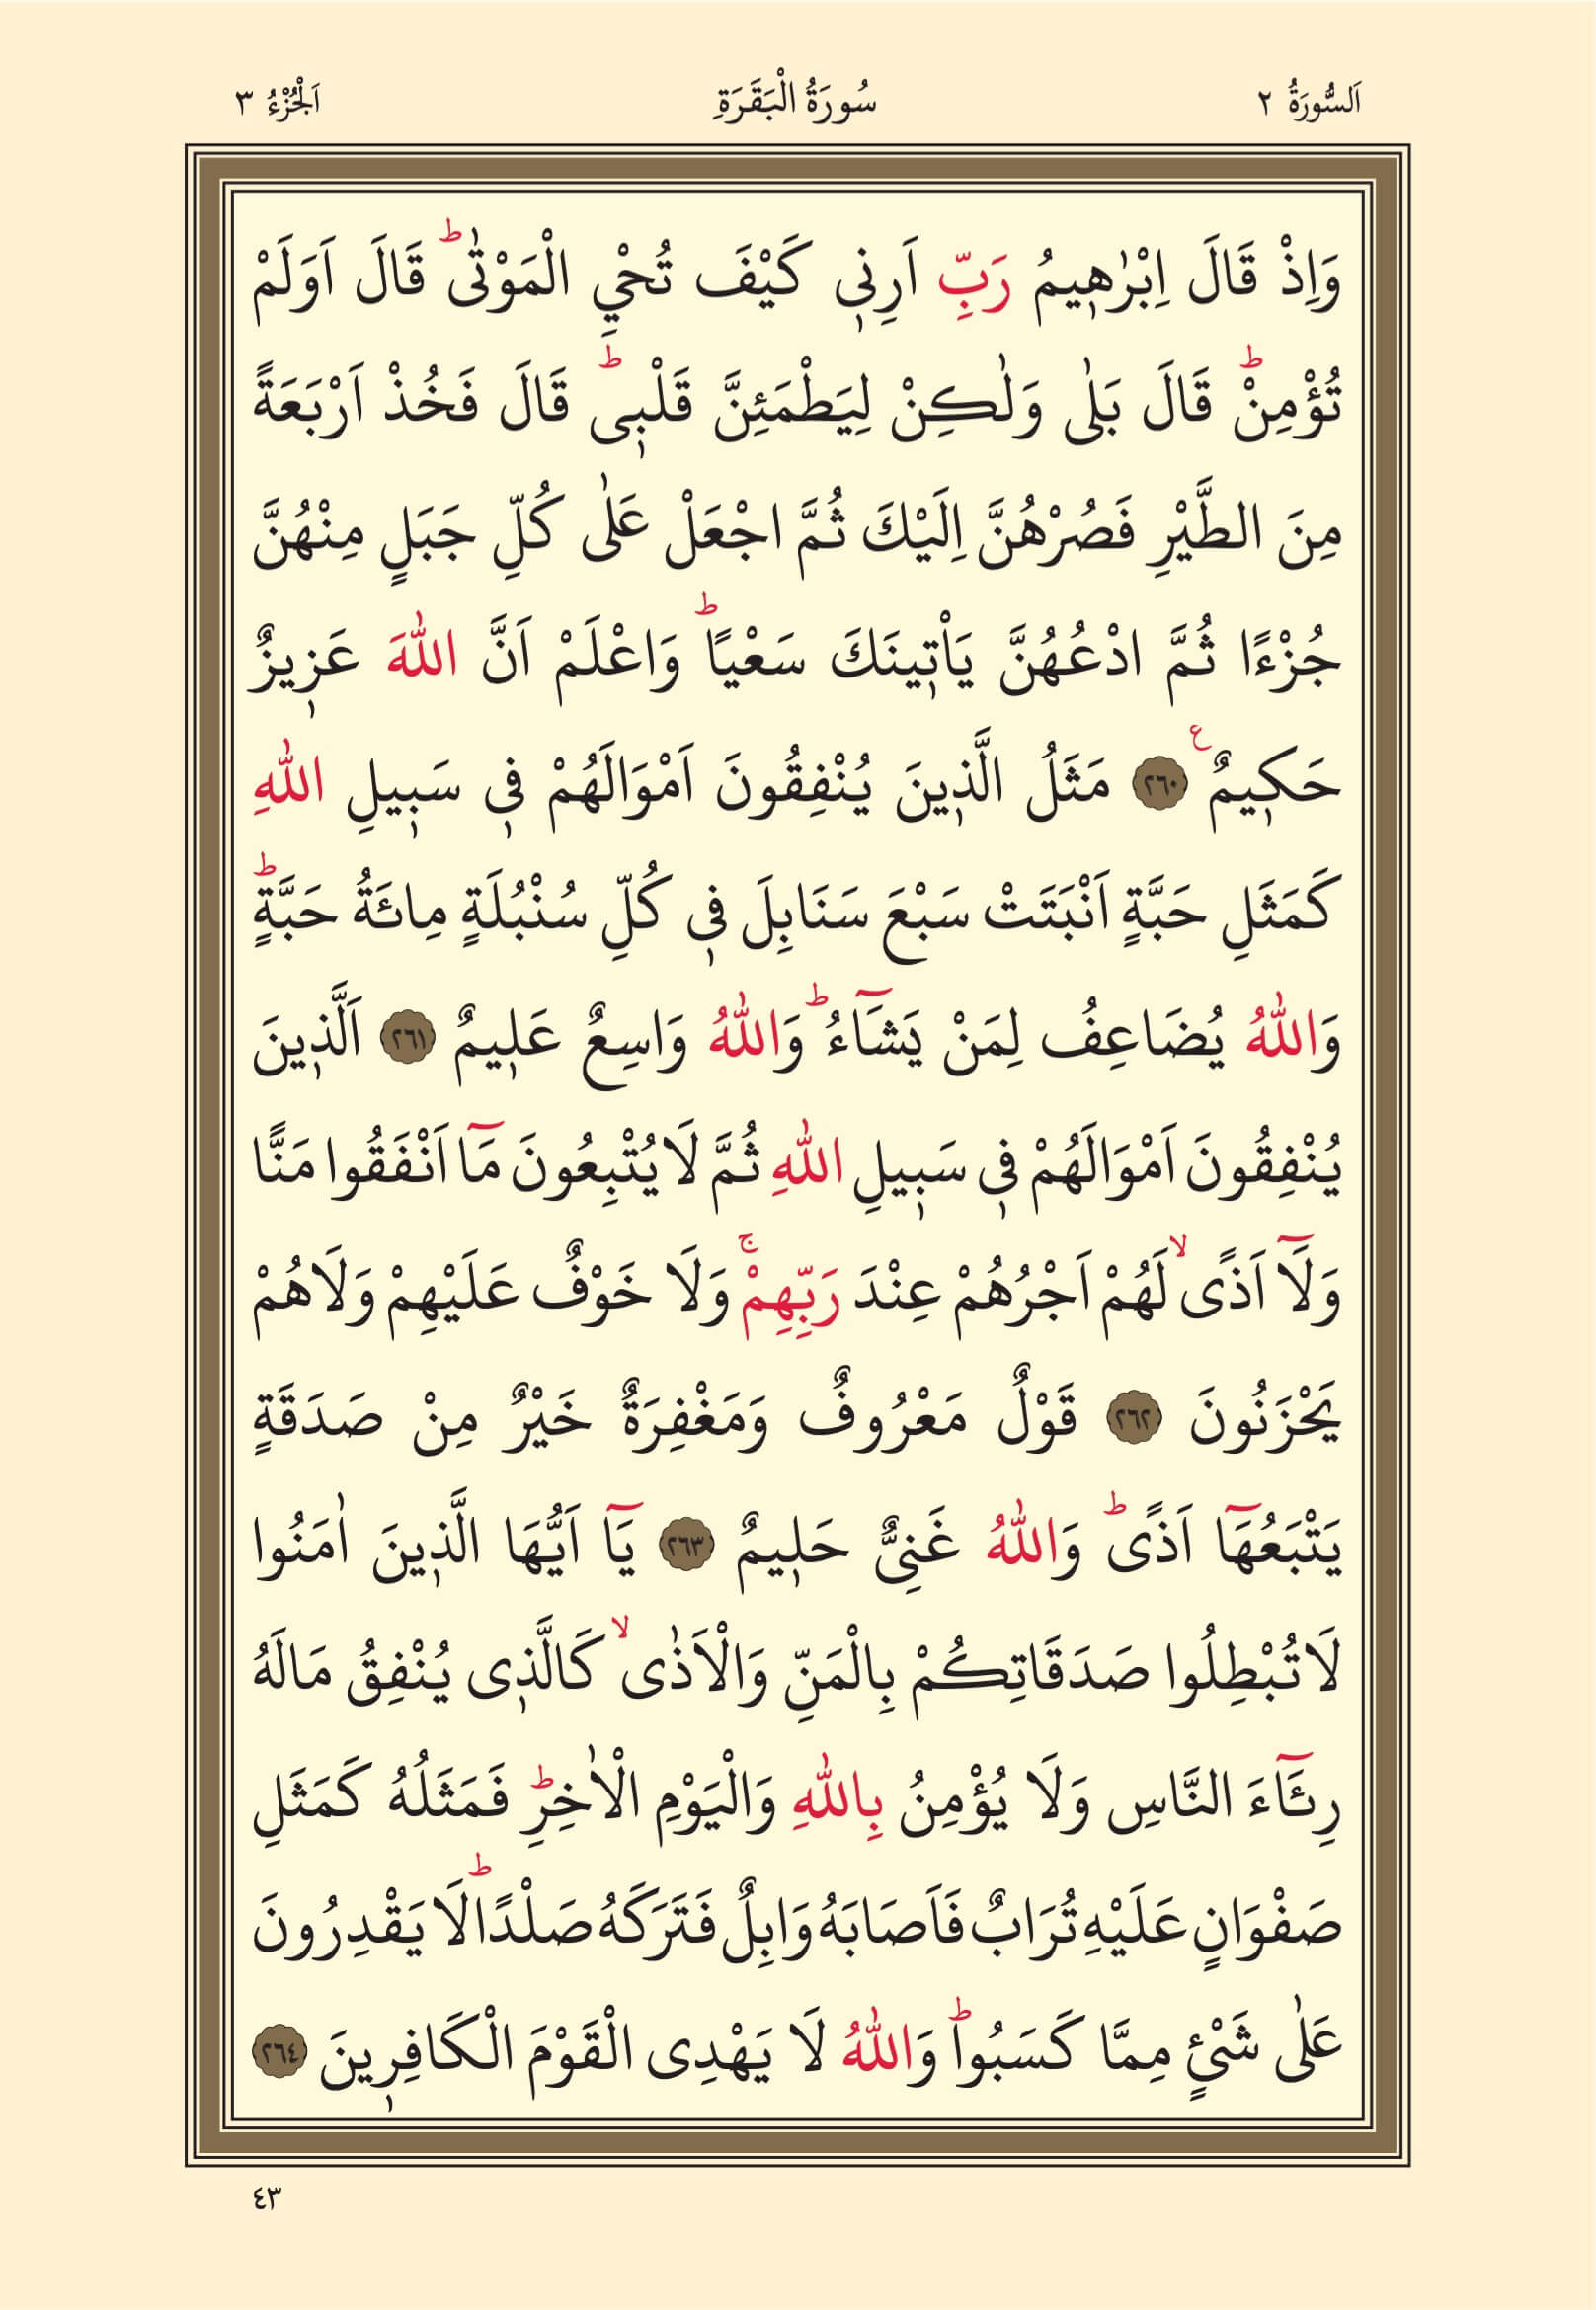 اَلسُّورَةُ ٢ سُورَةُ الْبَقَرَةِ اَلْجُزْءُ ٣
وَاِذْ قَالَ اِبْرٰه۪يمُ رَبِّ اَرِن۪ي كَيْفَ تُحْيِ الْمَوْتٰىۜ قَالَ اَوَلَمْ
تُؤْمِنْۜ قَالَ بَلٰى وَلٰكِنْ لِيَطْمَئِنَّ قَلْب۪يۜ قَالَ فَخُذْ اَرْبَعَةً
مِنَ الطَّيْرِ فَصُرْهُنَّ اِلَيْكَ ثُمَّ اجْعَلْ عَلٰى كُلِّ جَبَلٍ مِنْهُنَّ
جُزْءًا ثُمَّ ادْعُهُنَّ يَأْت۪ينَكَ سَعْيًاۜ وَاعْلَمْ اَنَّ اللّٰهَ عَز۪يزٌ
حَك۪يمٌ ع ٢٦٠ مَثَلُ الَّذ۪ينَ يُنْفِقُونَ اَمْوَالَهُمْ ف۪ي سَب۪يلِ اللّٰهِ
كَمَثَلِ حَبَّةٍ اَنْبَتَتْ سَبْعَ سَنَابِلَ ف۪ي كُلِّ سُنْبُلَةٍ مِائَةُ حَبَّةٍۜ
وَاللّٰهُ يُضَاعِفُ لِمَنْ يَشَٓاءُۜ وَاللّٰهُ وَاسِعٌ عَل۪يمٌ ٢٦١ اَلَّذ۪ينَ
يُنْفِقُونَ اَمْوَالَهُمْ ف۪ي سَب۪يلِ اللّٰهِ ثُمَّ لَا يُتْبِعُونَ مَٓا اَنْفَقُوا مَنًّا
وَلَٓا اَذًىۙ لَهُمْ اَجْرُهُمْ عِنْدَ رَبِّهِمْۚ وَلَا خَوْفٌ عَلَيْهِمْ وَلَا هُمْ
يَحْزَنُونَ ٢٦٢ قَوْلٌ مَعْرُوفٌ وَمَغْفِرَةٌ خَيْرٌ مِنْ صَدَقَةٍ
يَتْبَعُهَٓا اَذًىۜ وَاللّٰهُ غَنِيٌّ حَل۪يمٌ ٢٦٣ يَٓا اَيُّهَا الَّذ۪ينَ اٰمَنُوا
لَا تُبْطِلُوا صَدَقَاتِكُمْ بِالْمَنِّ وَالْاَذٰىۙ كَالَّذ۪ي يُنْفِقُ مَالَهُ
رِئَٓاءَ النَّاسِ وَلَا يُؤْمِنُ بِاللّٰهِ وَالْيَوْمِ الْاٰخِرِۜ فَمَثَلُهُ كَمَثَلِ
صَفْوَانٍ عَلَيْهِ تُرَابٌ فَاَصَابَهُ وَابِلٌ فَتَرَكَهُ صَلْدًاۜ لَا يَقْدِرُونَ
عَلٰى شَيْءٍ مِمَّا كَسَبُواۜ وَاللّٰهُ لَا يَهْدِى الْقَوْمَ الْكَافِر۪ينَ ٢٦٤
٤٣